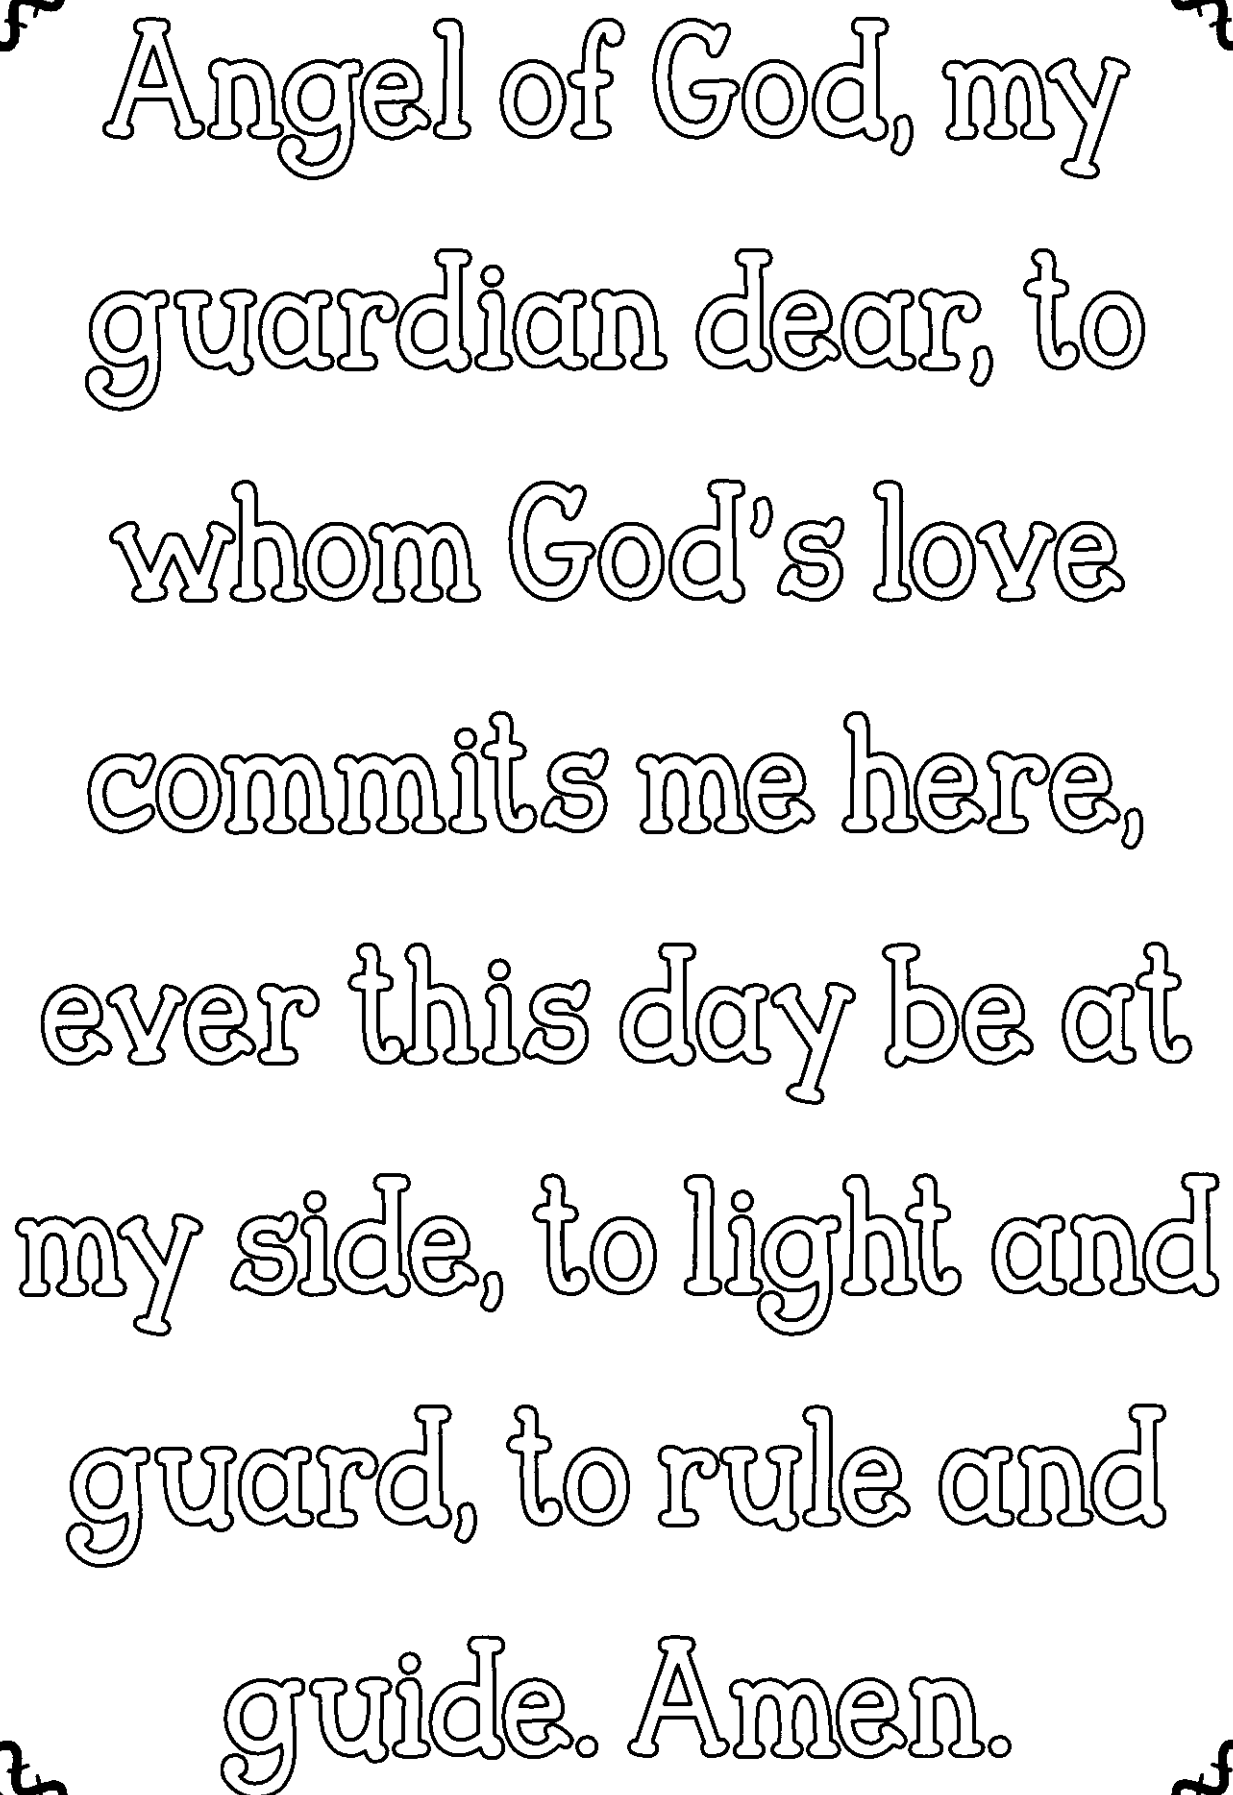 Angel of God, my
guardian dear, to
whom God's love
commits me here,
ever this day be at
my side, to light and
guard, to rule and
guide. Amen.